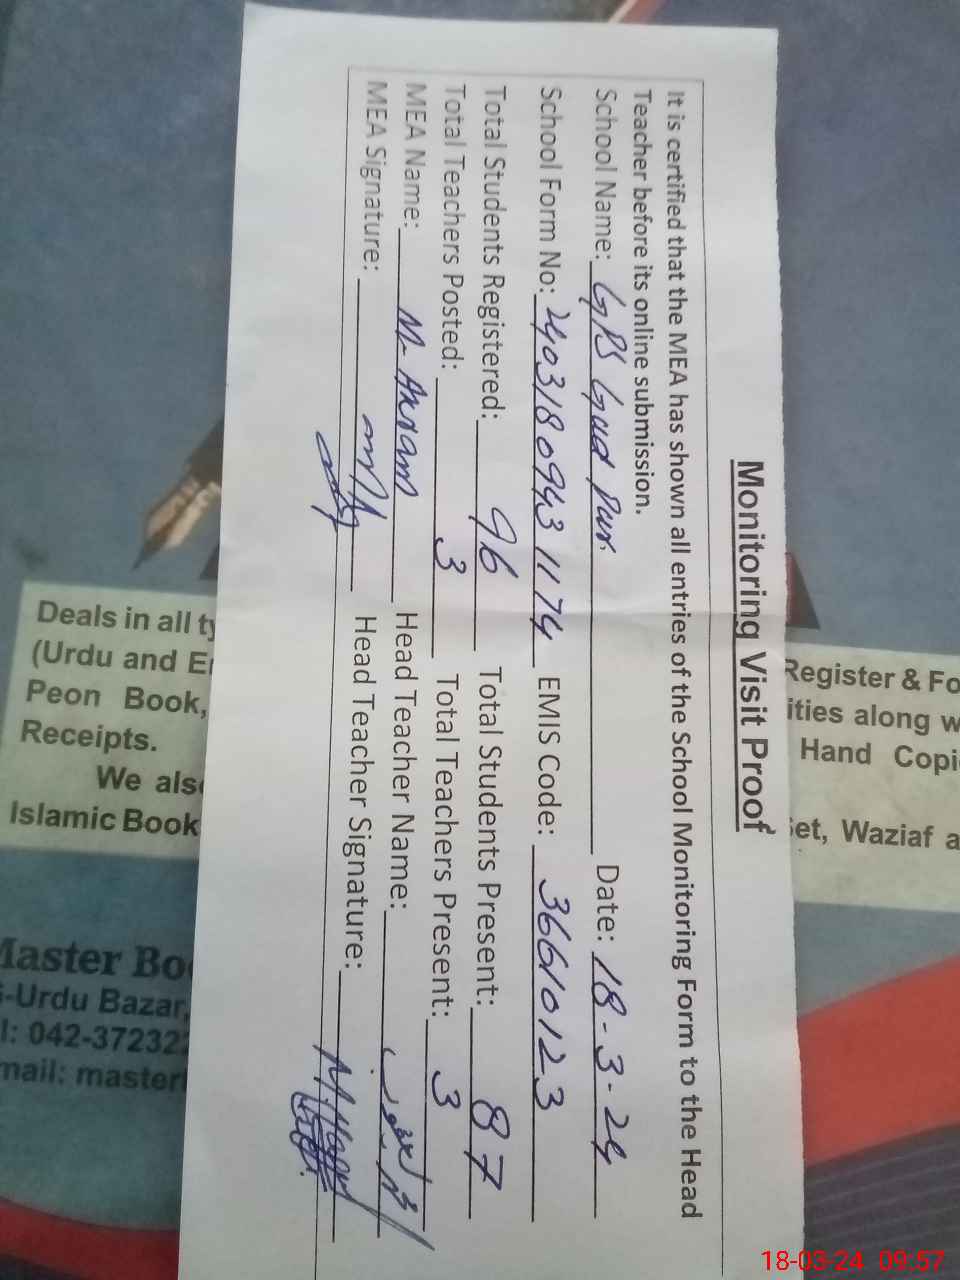 Monitoring Visit Proof
It is certified that the MEA has shown all entries of the School Monitoring Form to the Head
Teacher before its online submission.
School Name: GPS Gud Pur. Date: 18-3-24
School Form No: 2403180943 1174 EMIS Code: 36610123
Total Students Registered: 96 Total Students Present: 87
Total Teachers Posted: 3 Total Teachers Present: 3
MEA Name: M. Akram Head Teacher Name:
MEA Signature: Head Teacher Signature:
Deals in all
(Urdu and
Peon Book,
Receipts.
We also
Islamic Book
Register & Fo
ities along w
Hand Copi
et, Waziaf a
Master Bo
-Urdu Bazar,
l: 042-37232
mail: master
18-03-24 09:57